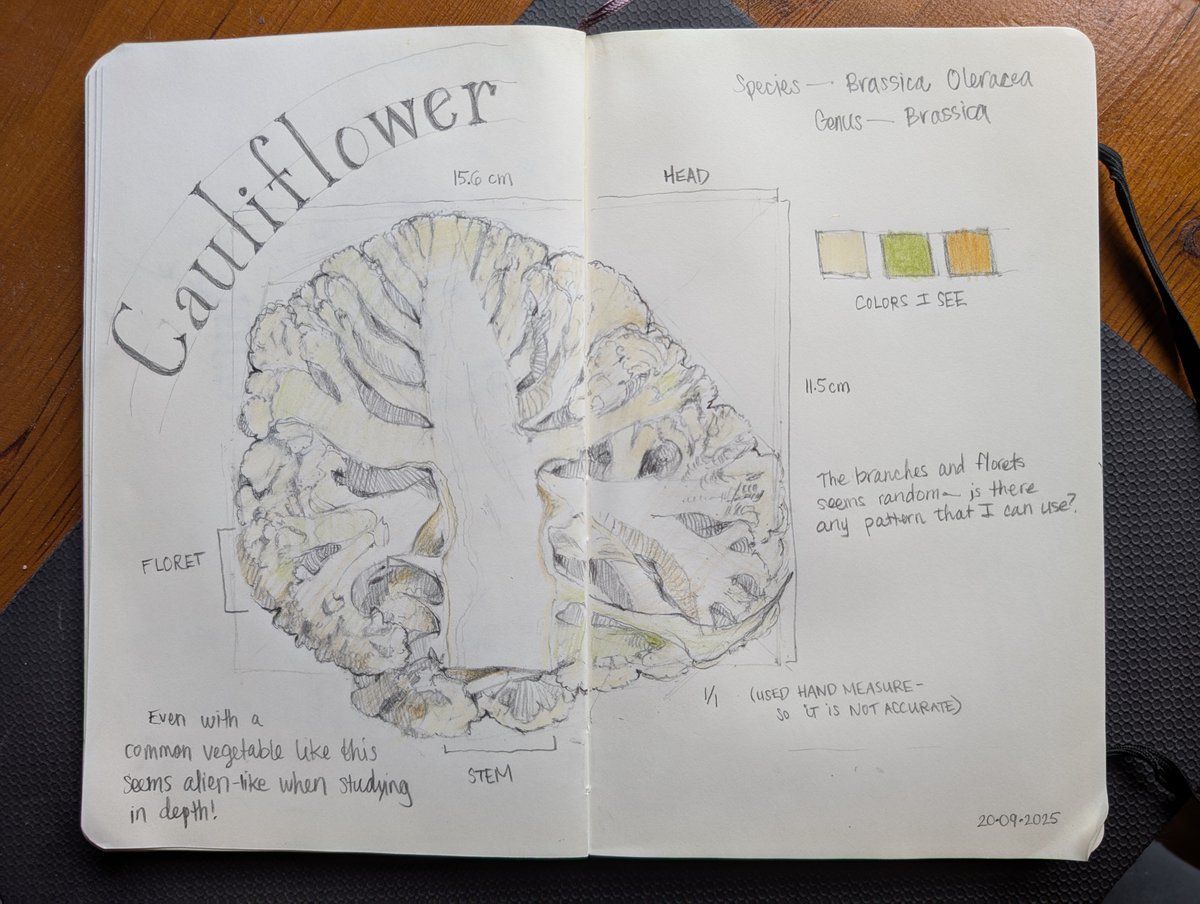 Cauliflower
Species — Brassica Oleracea
Genus — Brassica
15.6 cm
HEAD
COLORS I SEE
11.5cm
The branches and florets
seems random — is there
any pattern that I can use?
FLORET
1/1 (USED HAND MEASURE -
SO IT IS NOT ACCURATE)
Even with a
common vegetable like this
seems alien-like when studying
in depth!
STEM
20.09.2025